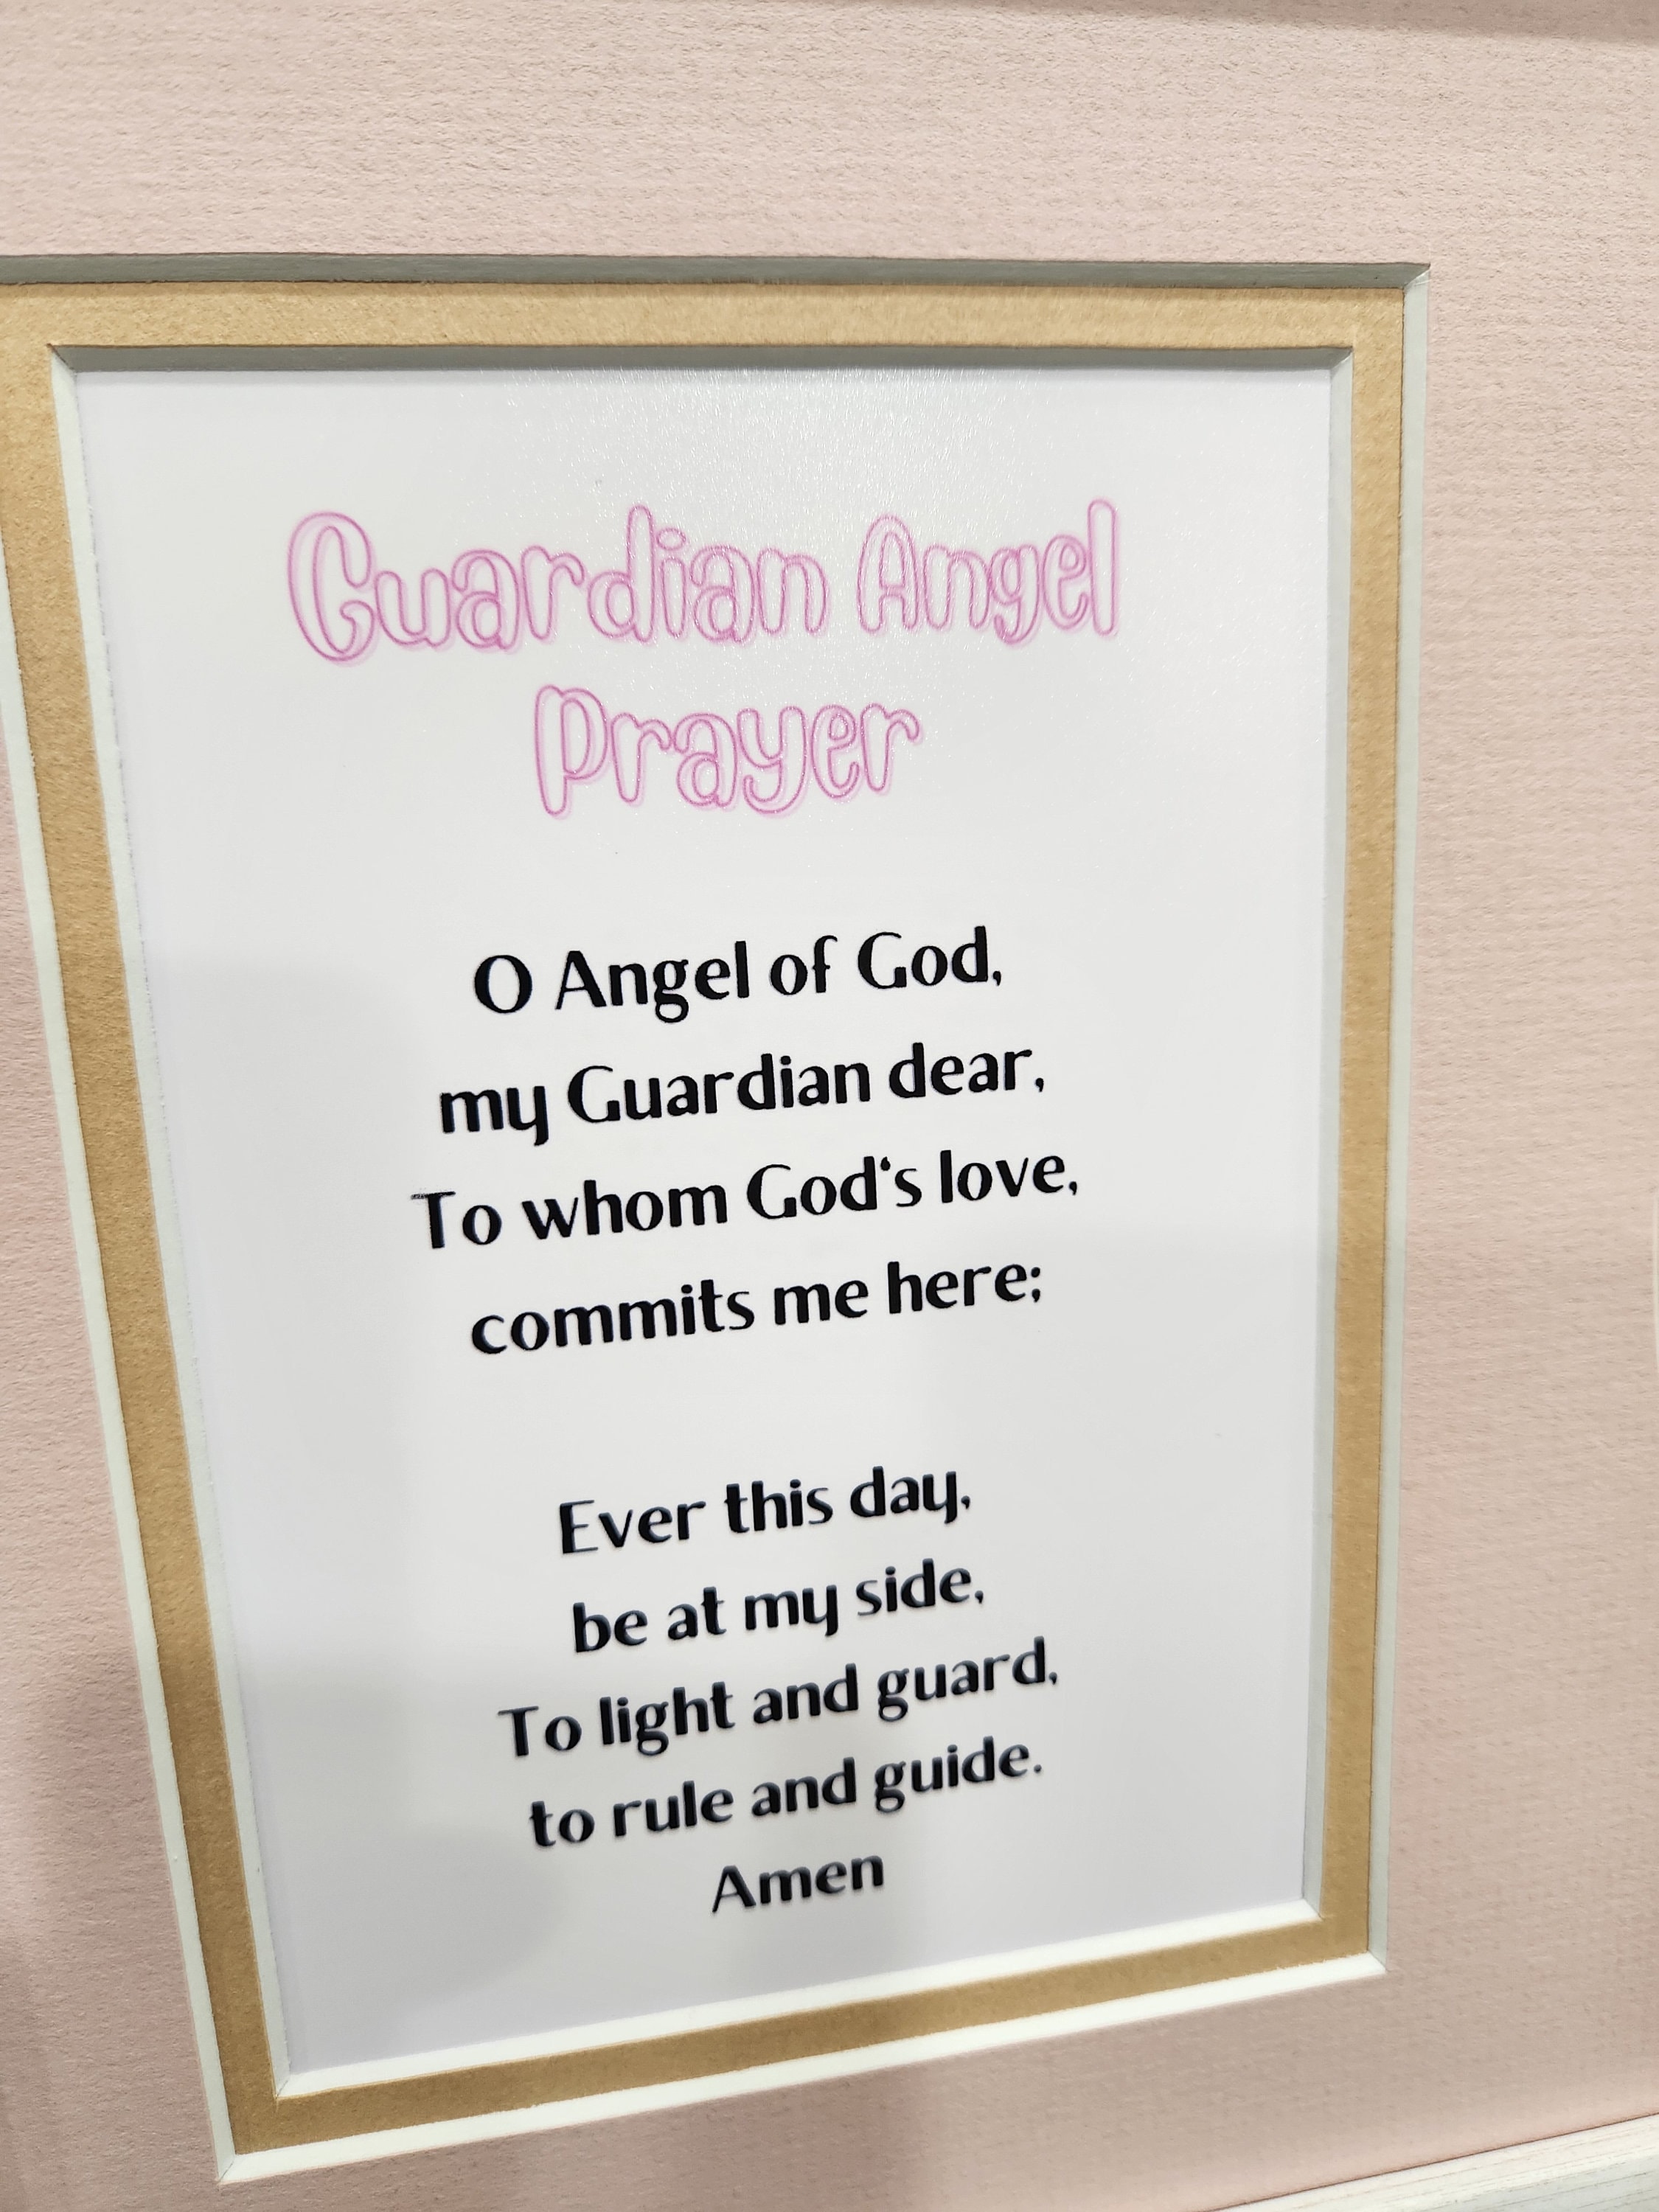 Guardian Angel
Prayer
O Angel of God,
my Guardian dear,
To whom God's love,
commits me here;
Ever this day,
be at my side,
To light and guard,
to rule and guide.
Amen